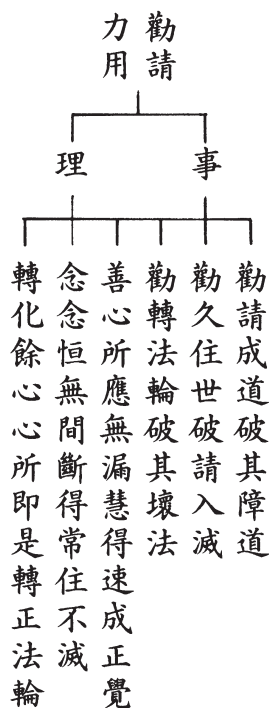 勸請
力用
事
理
勸請成道破其障道
勸久住世破請入滅
勸轉法輪破其壞法
善心所應無漏慧得速成正覺
念念恒無間斷得常住不滅
轉化餘心心所即是轉正法輪